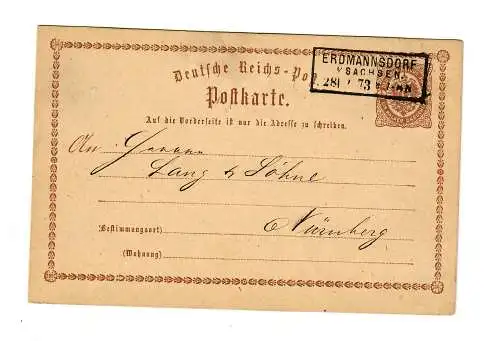 ERDMANNSDORF
SACHSEN
Deutsche Reichs-Post
Postkarte.
Auf die Vorderseite ist nur die Adresse zu schreiben.
An Herren
Lang & Söhne
Nürnberg
(Bestimmungsort)
(Wohnung)